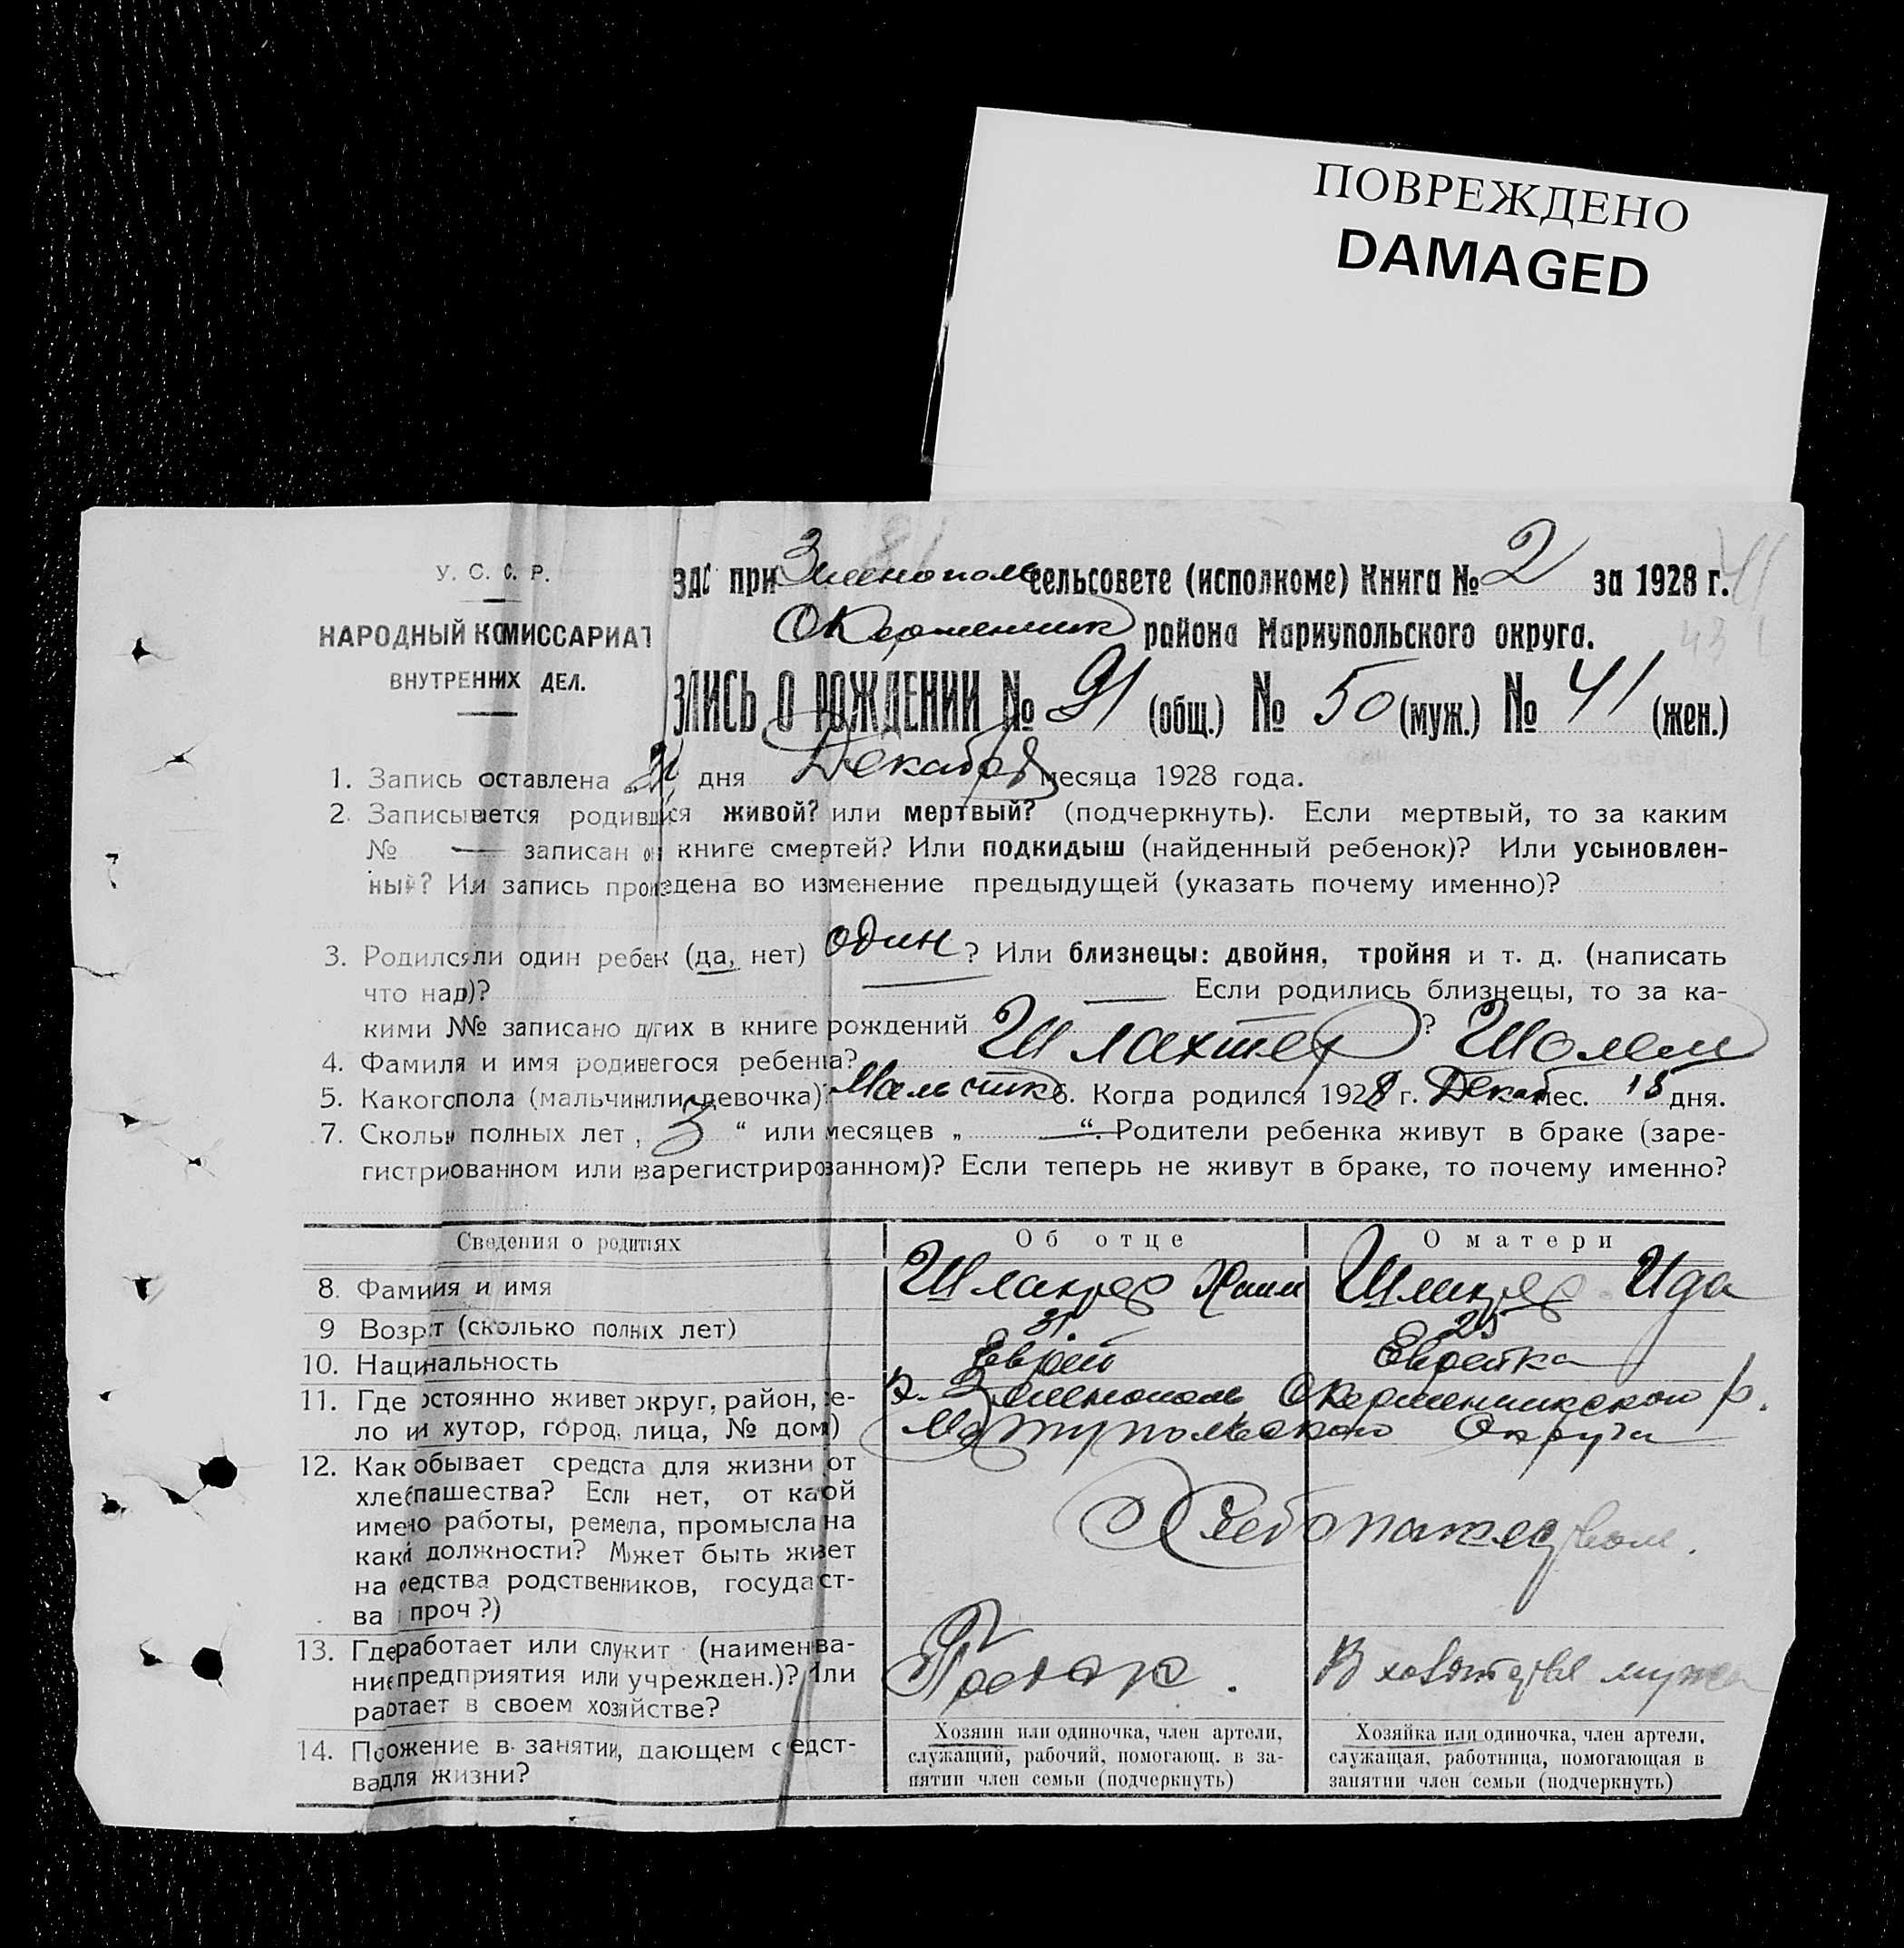 ПОВРЕЖДЕНО
DAMAGED
У. С. С. Р.
НАРОДНЫЙ КОМИССАРИАТ
ВНУТРЕННИХ ДЕЛ.
при Зеленополь сельсовете (исполкоме) Книга № 2 за 1928 г.
района Мариупольского округа.
ЗАПИСЬ О РОЖДЕНИИ № 91 (общ.) № 50 (муж.) № 41 (жен.)
1. Запись оставлена дня Декабря месяца 1928 года.
2. Записывается родившися живой? или мертвый? (подчеркнуть). Если мертвый, то за каким
№ — записан в книге смертей? Или подкидыш (найденный ребенок)? Или усыновлен-
ный? Или запись произведена во изменение предыдущей (указать почему именно)?
3. Родился ли один ребенк (да, нет) один ? Или близнецы: двойня, тройня и т. д. (написать
что над)? — Если родились близнецы, то за ка-
кими №№ записано других в книге рождений ?
4. Фамиля и имя родившегося ребенка? Шлахтер Шолем
5. Какого пола (мальчик или девочка) Мальчик 6. Когда родился 1928 г. Декаб мес. 18 дня.
7. Скольк полных лет „ 3 “ или месяцев „ — “. Родители ребенка живут в браке (заре-
гистрированном или незарегистрированном)? Если теперь не живут в браке, то почему именно?
Сведения о родителях Об отце О матери
8. Фамилия и имя Шлахтер Хаим Шлахтер Ида
9 Возраст (сколько полных лет) 31 25
10. Национальность Еврей Еврейка
11. Где постоянно живет округ, район, се-
ло или хутор, город, улица, № дома)
к. Зеленополь
Мариупольского Округа
12. Как добывает средства для жизни от
хлебопашества? Если нет, от какой
именно работы, ремесла, промысла на
какой должности? Может быть живет
на средства родственников, государст-
ва и проч ?)
Хлебопашеством.
13. Где работает или служит (наименова-
ние предприятия или учрежден.)? Или
работает в своем хозяйстве?
В хозяйстве мужа
14. Положение в занятии, дающем средст-
ва для жизни?
Хозяин или одиночка, член артели,
служащий, рабочий, помогающ. в за-
нятии член семьи (подчеркнуть)
Хозяйка или одиночка, член артели,
служащая, работница, помогающая в
занятии член семьи (подчеркнуть)